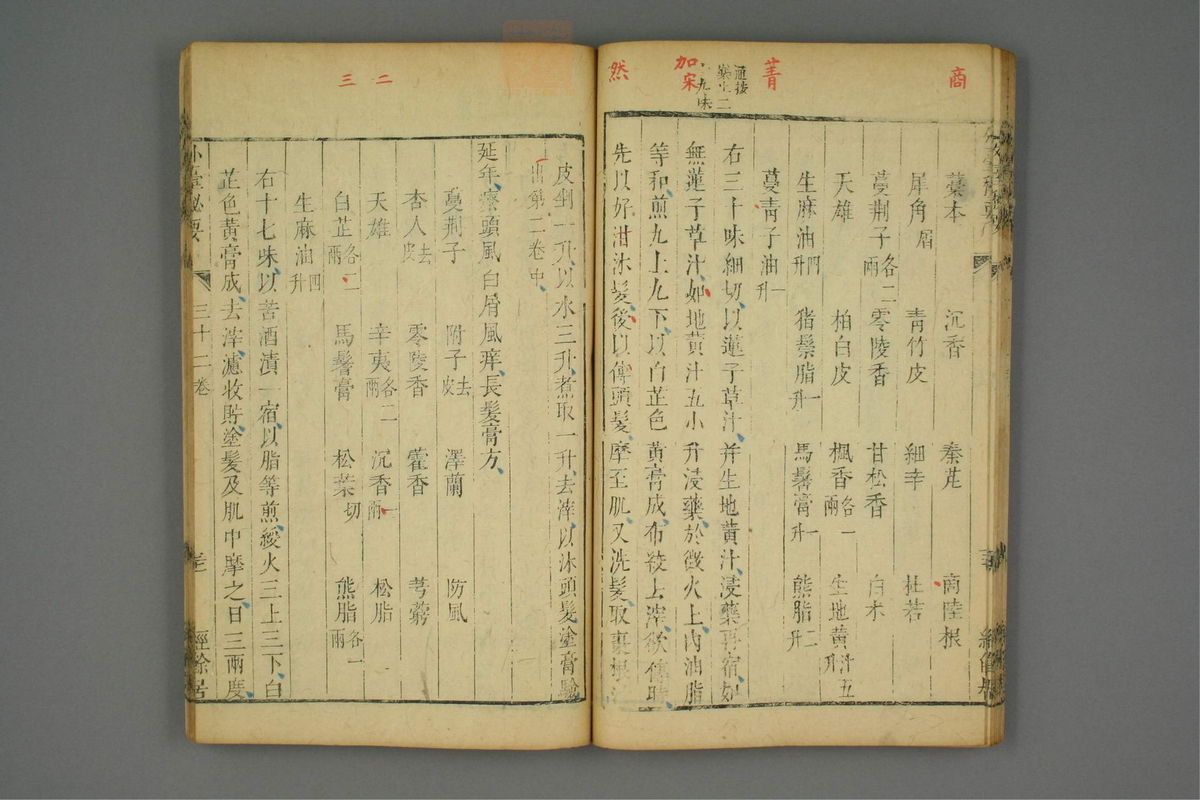 商
菁
通按
藥止二
八九味
加
宋
然
藁本 沉香 秦艽 商陸根
犀角屑 青竹皮 細辛 杜若
蔓荆子各二兩 零陵香 甘松香 白朮
天雄 柏白皮 楓香各一兩 生地黄汁五升
生麻油四升 猪鬃脂一升 馬鬐膏一升 熊脂二升
蔓青子油一升
右三十味細切以蓮子草汁并生地黄汁浸藥再宿如
無蓮子草汁如地黄汁五小升浸藥於微火上内油脂
等和煎九上九下以白芷色黄膏成布絞上滓欲傅時
先以好泔沐髮後以傅頭髮摩至肌又洗髮取棗根
皮剉一升以水三升煮取一升去滓以沐頭髮塗膏驗
出第二卷中
二
三
延年療頭風白屑風痒長髮膏方
蔓荆子 附子去皮 澤蘭 防風
杏人去皮 零陵香 藿香 芎藭
天雄 辛夷各二兩 沉香一兩 松脂
白芷各二兩 馬鬐膏 松葉切 熊脂各一兩
生麻油四升
右十七味以苦酒漬一宿以脂等煎緩火三上三下白
芷色黄膏成去滓濾收貯塗髮及肌中摩之日三兩度
外臺秘要 三十二卷 經餘居